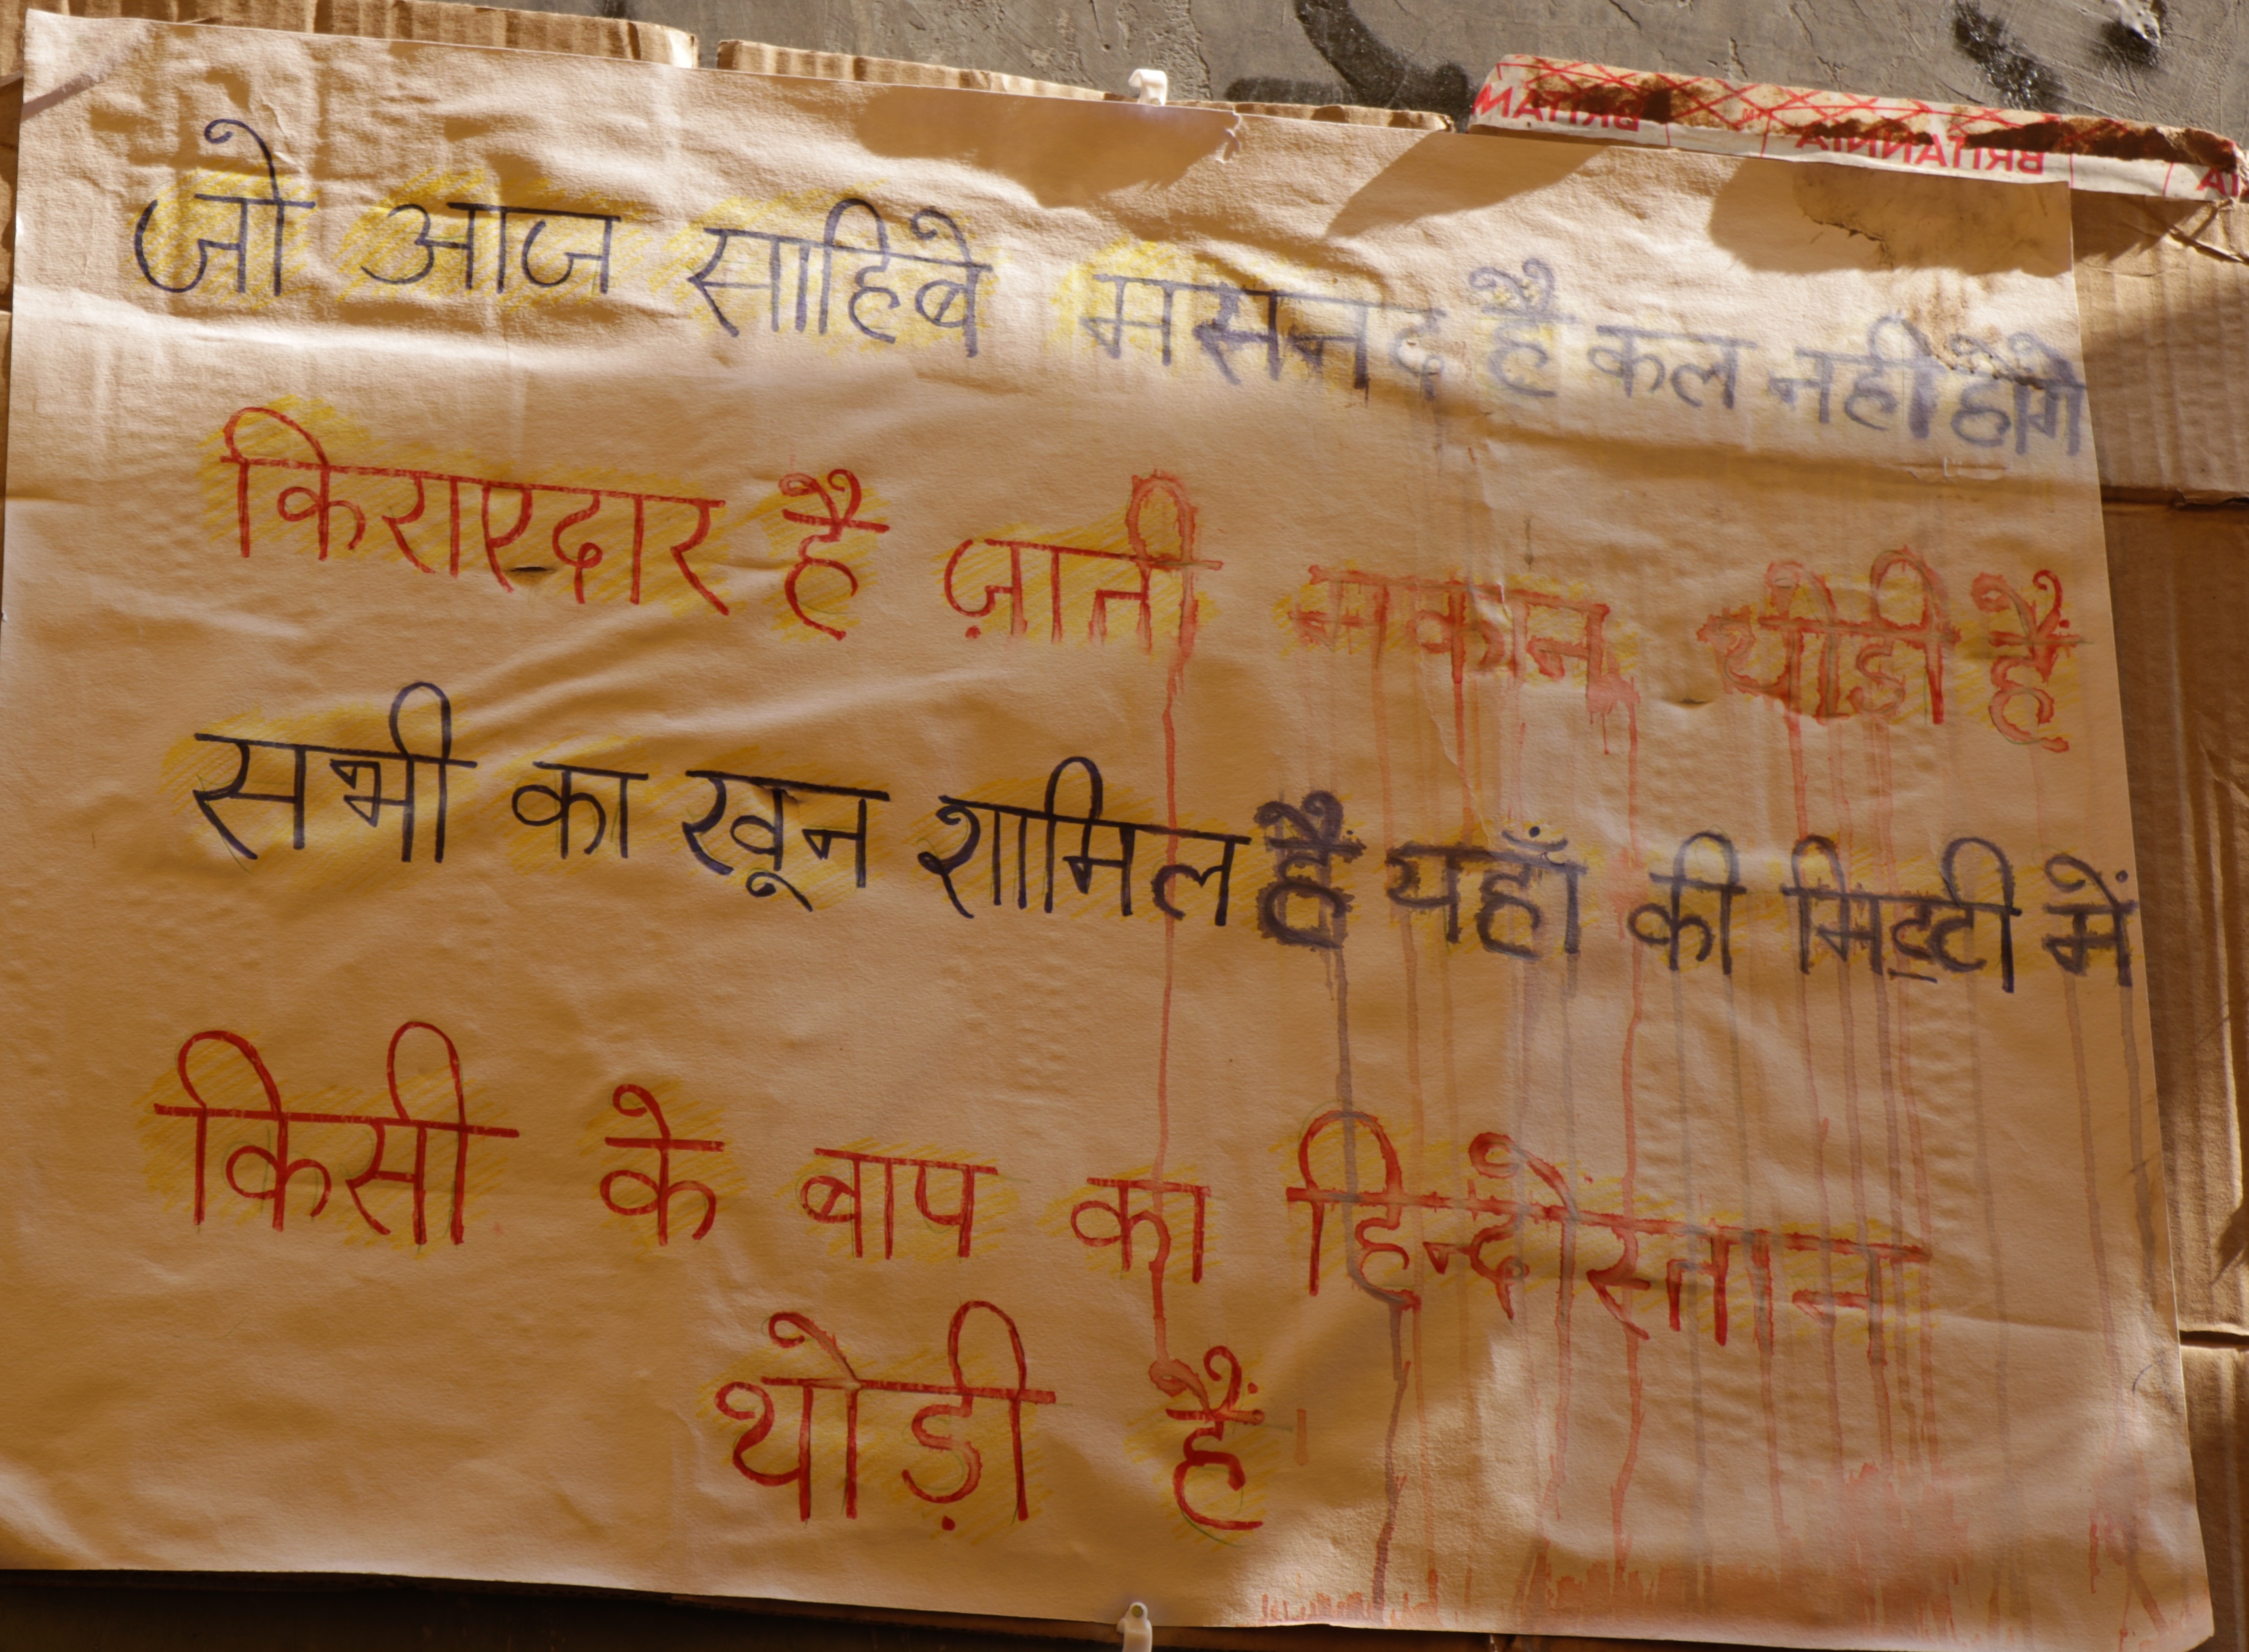 BRITANNIA BRITANNIA
जो आज साहिबे मसनद है कल नही होगे
किराएदार है ज़ाती मकान थोडी है
सभी का खून शामिल है यहाँ की मिट्टी में
किसी के बाप का हिन्दोस्तान
थोड़ी है